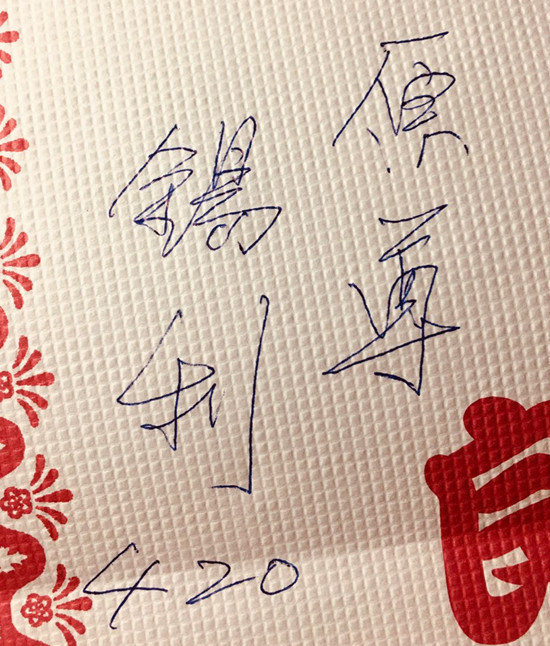 原尊
錫利
420